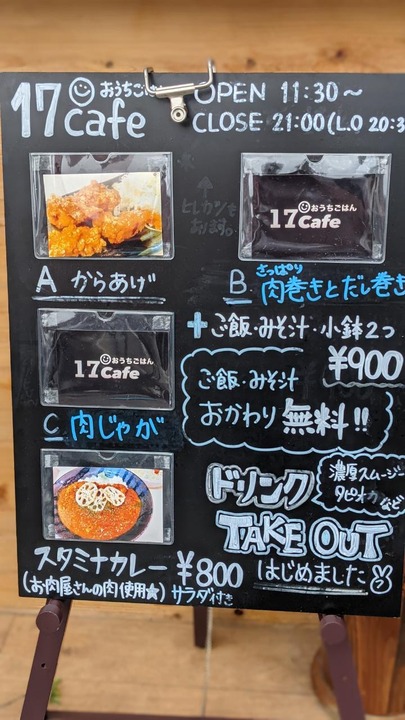 17 おうちごはん
cafe
OPEN 11:30〜
CLOSE 21:00(L.O 20:3
↑
ヒレカツも
あります。
17 おうちごはん
Cafe
A からあげ
B さっぱり
肉巻きとだし巻き
17 おうちごはん
Cafe
+ご飯・みそ汁・小鉢2つ
¥900
ご飯・みそ汁
おかわり無料!!
C 肉じゃが
ドリンク
濃厚スムージー
タピオカなど
TAKE OUT
はじめました
スタミナカレー ¥800
(お肉屋さんの肉使用★) サラダ付き